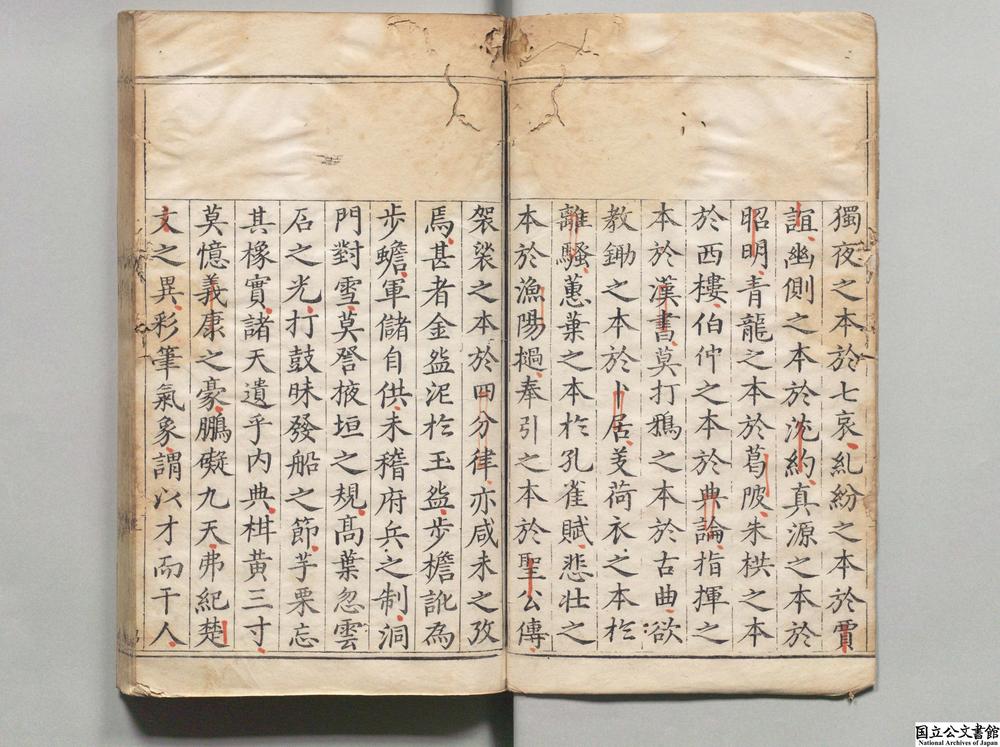 獨夜之本於七哀糺紛之本於賈
誼幽側之本於沈約真源之本於
昭明青龍之本於葛陂朱栱之本
於西樓伯仲之本於典論指揮之
本於漢書莫打鴉之本於古曲欲
教鋤之本於卜居芰荷衣之本於
離騷蕙葉之本於孔雀賦悲壯之
本於漁陽撾奉引之本於聖公傳
袈裟之本於四分律亦咸未之攷
焉甚者金盌泥於玉盌步檐訛為
步蟾軍儲自供未稽府兵之制洞
門對雪莫詧掖垣之規高葉忽雲
石之光打鼓昧發船之節芋栗忘
其橡實諸天遺乎内典柑黄三寸
莫憶義康之豪鵬礙九天弗紀楚
文之異彩筆氣象謂以才而干人
国立公文書館
National Archives of Japan